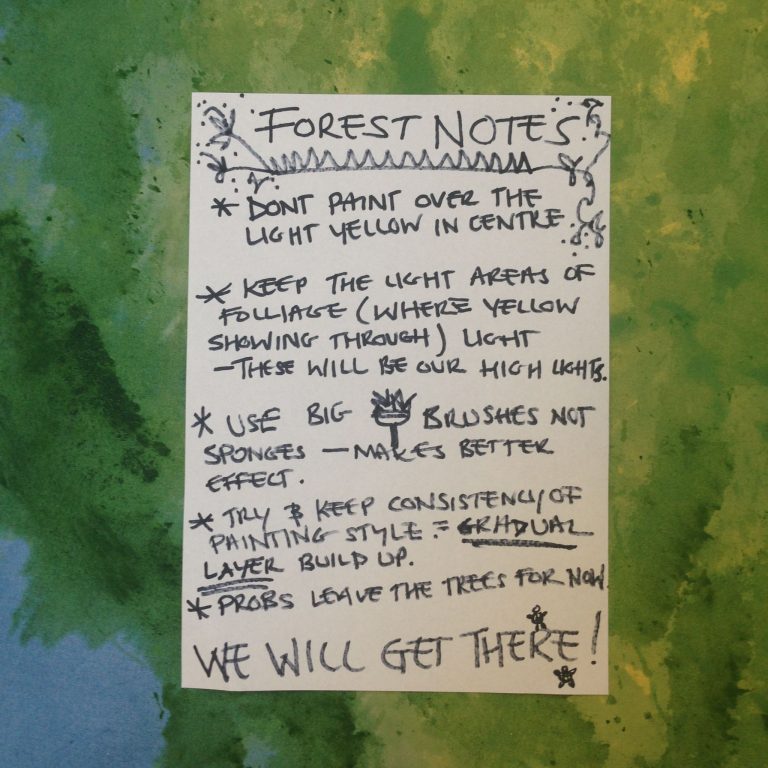 FOREST NOTES
* DONT PAINT OVER THE
LIGHT YELLOW IN CENTRE
* KEEP THE LIGHT AREAS OF
FOLLIAGE (WHERE YELLOW
SHOWING THROUGH) LIGHT
- THESE WILL BE OUR HIGH LIGHTS.
* USE BIG BRUSHES NOT
SPONGES - MAKES BETTER
EFFECT.
* TRY & KEEP CONSISTENCY OF
PAINTING STYLE = GRADUAL
LAYER BUILD UP.
* PROBS LEAVE THE TREES FOR NOW.
WE WILL GET THERE!